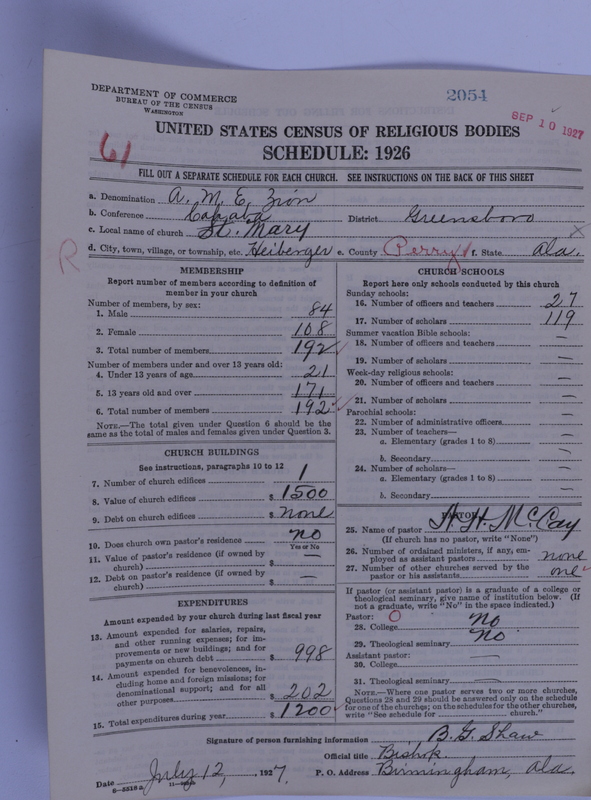 DEPARTMENT OF COMMERCE
BUREAU OF THE CENSUS
WASHINGTON
2054
SEP 10 1927
61
UNITED STATES CENSUS OF RELIGIOUS BODIES
SCHEDULE: 1926
FILL OUT A SEPARATE SCHEDULE FOR EACH CHURCH. SEE INSTRUCTIONS ON THE BACK OF THIS SHEET
a. Denomination A. M. E. Zion
b. Conference Cahaba District Greensboro
c. Local name of church St. Mary
d. City, town, village, or township, etc. Heiberger e. County Perry f. State Ala.
R
MEMBERSHIP
Report number of members according to definition of
member in your church
Number of members, by sex:
1. Male 84
2. Female 108
3. Total number of members 192
Number of members under and over 13 years old:
4. Under 13 years of age 21
5. 13 years old and over 171
6. Total number of members 192
NOTE.—The total given under Question 6 should be
same as the total of males and females given under Question 3.
CHURCH BUILDINGS
See instructions, paragraphs 10 to 12
7. Number of church edifices 1
8. Value of church edifices $ 1500
9. Debt on church edifices $ none
10. Does church own pastor's residence no
Yes or No
11. Value of pastor's residence (if owned by
church) $ —
12. Debt on pastor's residence (if owned by
church) $ —
EXPENDITURES
Amount expended by your church during last fiscal year
13. Amount expended for salaries, repairs,
and other running expenses; for im-
provements or new buildings; and for
payments on church debt $ 998
14. Amount expended for benevolences, in-
cluding home and foreign missions; for
denominational support; and for all
other purposes $ 202
15. Total expenditures during year $ 1200
CHURCH SCHOOLS
Report here only schools conducted by this church
Sunday schools:
16. Number of officers and teachers 27
17. Number of scholars 119
Summer vacation Bible schools:
18. Number of officers and teachers —
19. Number of scholars —
Week-day religious schools:
20. Number of officers and teachers —
21. Number of scholars —
Parochial schools:
22. Number of administrative officers —
23. Number of teachers—
a. Elementary (grades 1 to 8) —
b. Secondary —
24. Number of scholars—
a. Elementary (grades 1 to 8) —
b. Secondary —
PASTOR
25. Name of pastor H. H. McCay
(If church has no pastor, write "None")
26. Number of ordained ministers, if any, em-
ployed as assistant pastors none
27. Number of other churches served by the
pastor or his assistants one
If pastor (or assistant pastor) is a graduate of a college or
theological seminary, give name of institution below. (If
not a graduate, write "No" in the space indicated.)
Pastor: O
28. College no
29. Theological seminary no
Assistant pastor:
30. College —
31. Theological seminary —
NOTE.—Where one pastor serves two or more churches,
Questions 28 and 29 should be answered only on the schedule
for one of the churches; on the schedules for the other churches,
write "See schedule for church."
Signature of person furnishing information B. G. Shaw
Official title Bishop.
Date July 12, 1927. P. O. Address Birmingham, Ala.